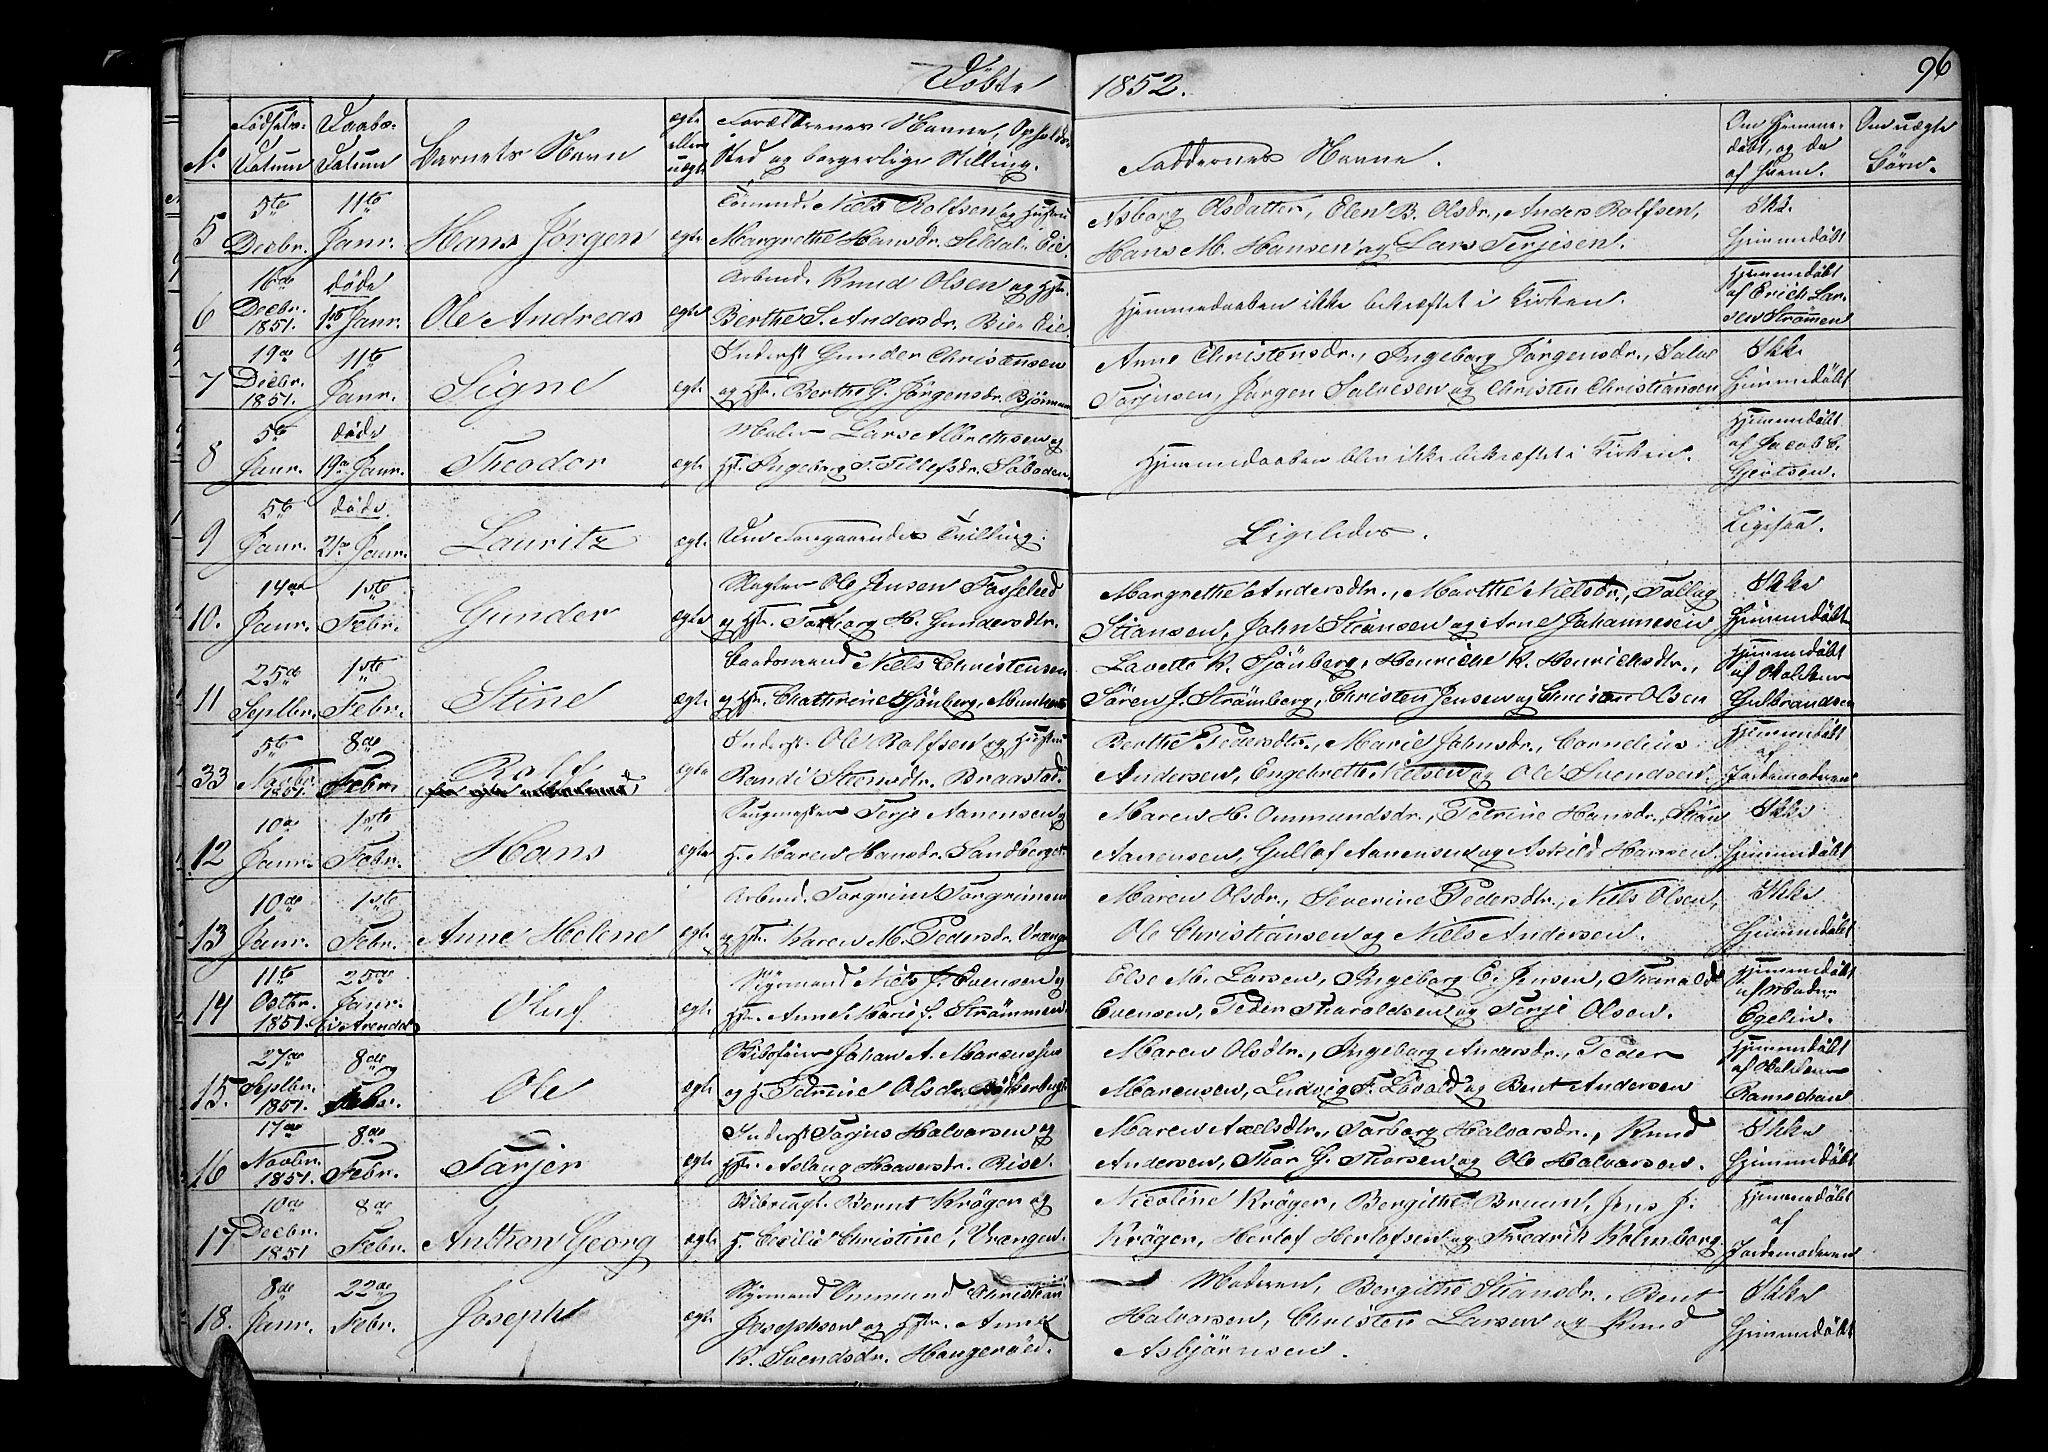 Døbte 1852. 96
No Fødsels- Datum Daabs- Datum Barnets Navn ægte eller uægte Forældrenes Navne, Opholds-
Sted og borgerlige Stilling. Faddernes Navne. Om Hjemme-
døbt, og da
af hvem. Om uægte
Børn.
5 5te Decbr. 11te Janr. Hans Jörgen ægte Niels Rolfsen og Hustru
Margrethe Hansdr. Seldal. Eie.
Asborg Olsdatter, Elen B. Olsdr., Anders Rolfsen,
Hans M. Hansen og Lars Terjesen.
Ikke
hjemmedøbt
6 16de Decbr. 1851. døde Janr. Ole Andreas ægte Arbmd. Knud Olsen og Hstr.
Berthe S. Andersdr. Bie Eie
Hjemmedaaben ikke bekræftet i Kirken.
Hjemmedøbt
af Erich Lar-
sen Strømmen
7 19de Decbr. 1851. 11te Janr. Signe ægte Inderst Gunder Christensen
og Hstr. Berthe G. Jörgensdr.
Anne Christensdr., Ingeborg Jörgensdr., Salve
Torjusen, Jörgen Salvesen og Christen Christiansen
Ikke
hjemmedøbt
8 5te Janr. døde 19de Janr. Theodor ægte Maler Lars Albrethsen og
Hst. Ingeborg T. Tellefsdr. Söboden
Hjemmedaaben blev ikke bekræftet i Kirken.
Hjemmedøbt
af Jacob C.
Gjertsen.
9 5te Janr. døde 21de Janr. Lauritz ægte Den Foregaaendes Tvilling.
Ligeledes.
Ligesaa.
10. 14de Janr. 1ste Febr. Gunder ægte Ole Jensen
og Hstr. Torborg H. Gundersdtr.
Margrethe Andersdtr., Marthe Nielsdr., Tallag
Stiansen, John Stiansen og Arne Johannesen
Ikke
Hjemmedøbt
11 25de Septbr. 1ste Febr. Stine ægte Baadsmand Niels Christensen
og Hstr. Chathrine Sjönberg,
Lavette K. Sjönberg, Henriche K. Henrichsdtr.,
Sören J. Strömberg, Christen Jensen og Christen Olsen
Hjemmedøbt
af
Gulbrandsen
33 5te Novbr. 1851. 8de Febr. Rolf ægte Inderst. Ole Rolfsen og Hustru
Randi Stensdtr. Braastad.
Berthe Pedersdtr., Marie Johnsdr., Cornelius
Andersen, Engebrethe Nielsen og Ole Svendsen.
Hjemmedøbt
af
Jordemoderen
12 10de Janr. 1ste Febr. Hans ægte Saugmester Terje Aanensen og
H. Maren Hansdr. Sandberget.
Maren H. Ommundsdr., Petrine Hansdr., Stian
Aanensen, Gullof Aanensen og Askild Hansen
Ikke
hjemmedøbt
13 10de Janr. 1ste Febr. Anne Helene ægte Arbmd. Torgrim Torgrimsen
og Hstr. Karen M. Pedersdr. Vrængen
Maren Olsdr., Severine Pedersdtr., Niels Olsen,
Ole Christiansen og Niels Andersen.
Ikke
Hjemmedøbt
14 11te Octbr. 1851. 25de Janr. i Arendal Oluf ægte Styrmand Niels J. Evensen og
Hstr. Anne Marie J. Strømmen
Else M. Larsen, Ingeborg E. Jensen, Tharald
Evensen, Peder Tharaldsen og Terje Olsen.
Hjemmedøbt
af Madm
Egelin.
15. 27de Septbr. 1851. 8de Febr. Ole ægte Johan A. Marcussen
og H. Petrine Olsdr.
Maren Olsdtr., Ingeborg Andersdr., Peder
Marcusen, Ludvig F. Lövold og Bent Andersen
Hjemmedøbt
af
16 17de Novbr. 1851. 8de Febr. Tarjer ægte Inderst Torjus Halvorsen og
Hstr. Aslaug Haaversdr. Rise.
Maren Axelsdtr., Torborg Halvorsdr., Knud
Andersen, Thor G. Thorsen og Ole Halvorsen.
Ikke
Hjemmedøbt
17 10de Decbr. 1851 8de Febr. Anthon Georg ægte Skibsbygt. Bernt Kröger og
H. Cecilie Christine, Vrængen.
Nicoline Kröger, Bergithe Bruun, Jens J.
Kröger, Herlof Herlofsen og Fredrik Kolmborg.
Hjemmedøbt
af
Jordemoderen
18. 8de Janr. 22de Febr. Joseph ægte Styrmand Ommund Christian
Josephsen og Hstr. Anne
K. Svendsdr. Hangeröen.
Moderen, Bergithe Stiansdr., Bent
Halvorsen, Christen Larsen og Knud
Asbjörnsen.
Ikke
Hjemmedøbt